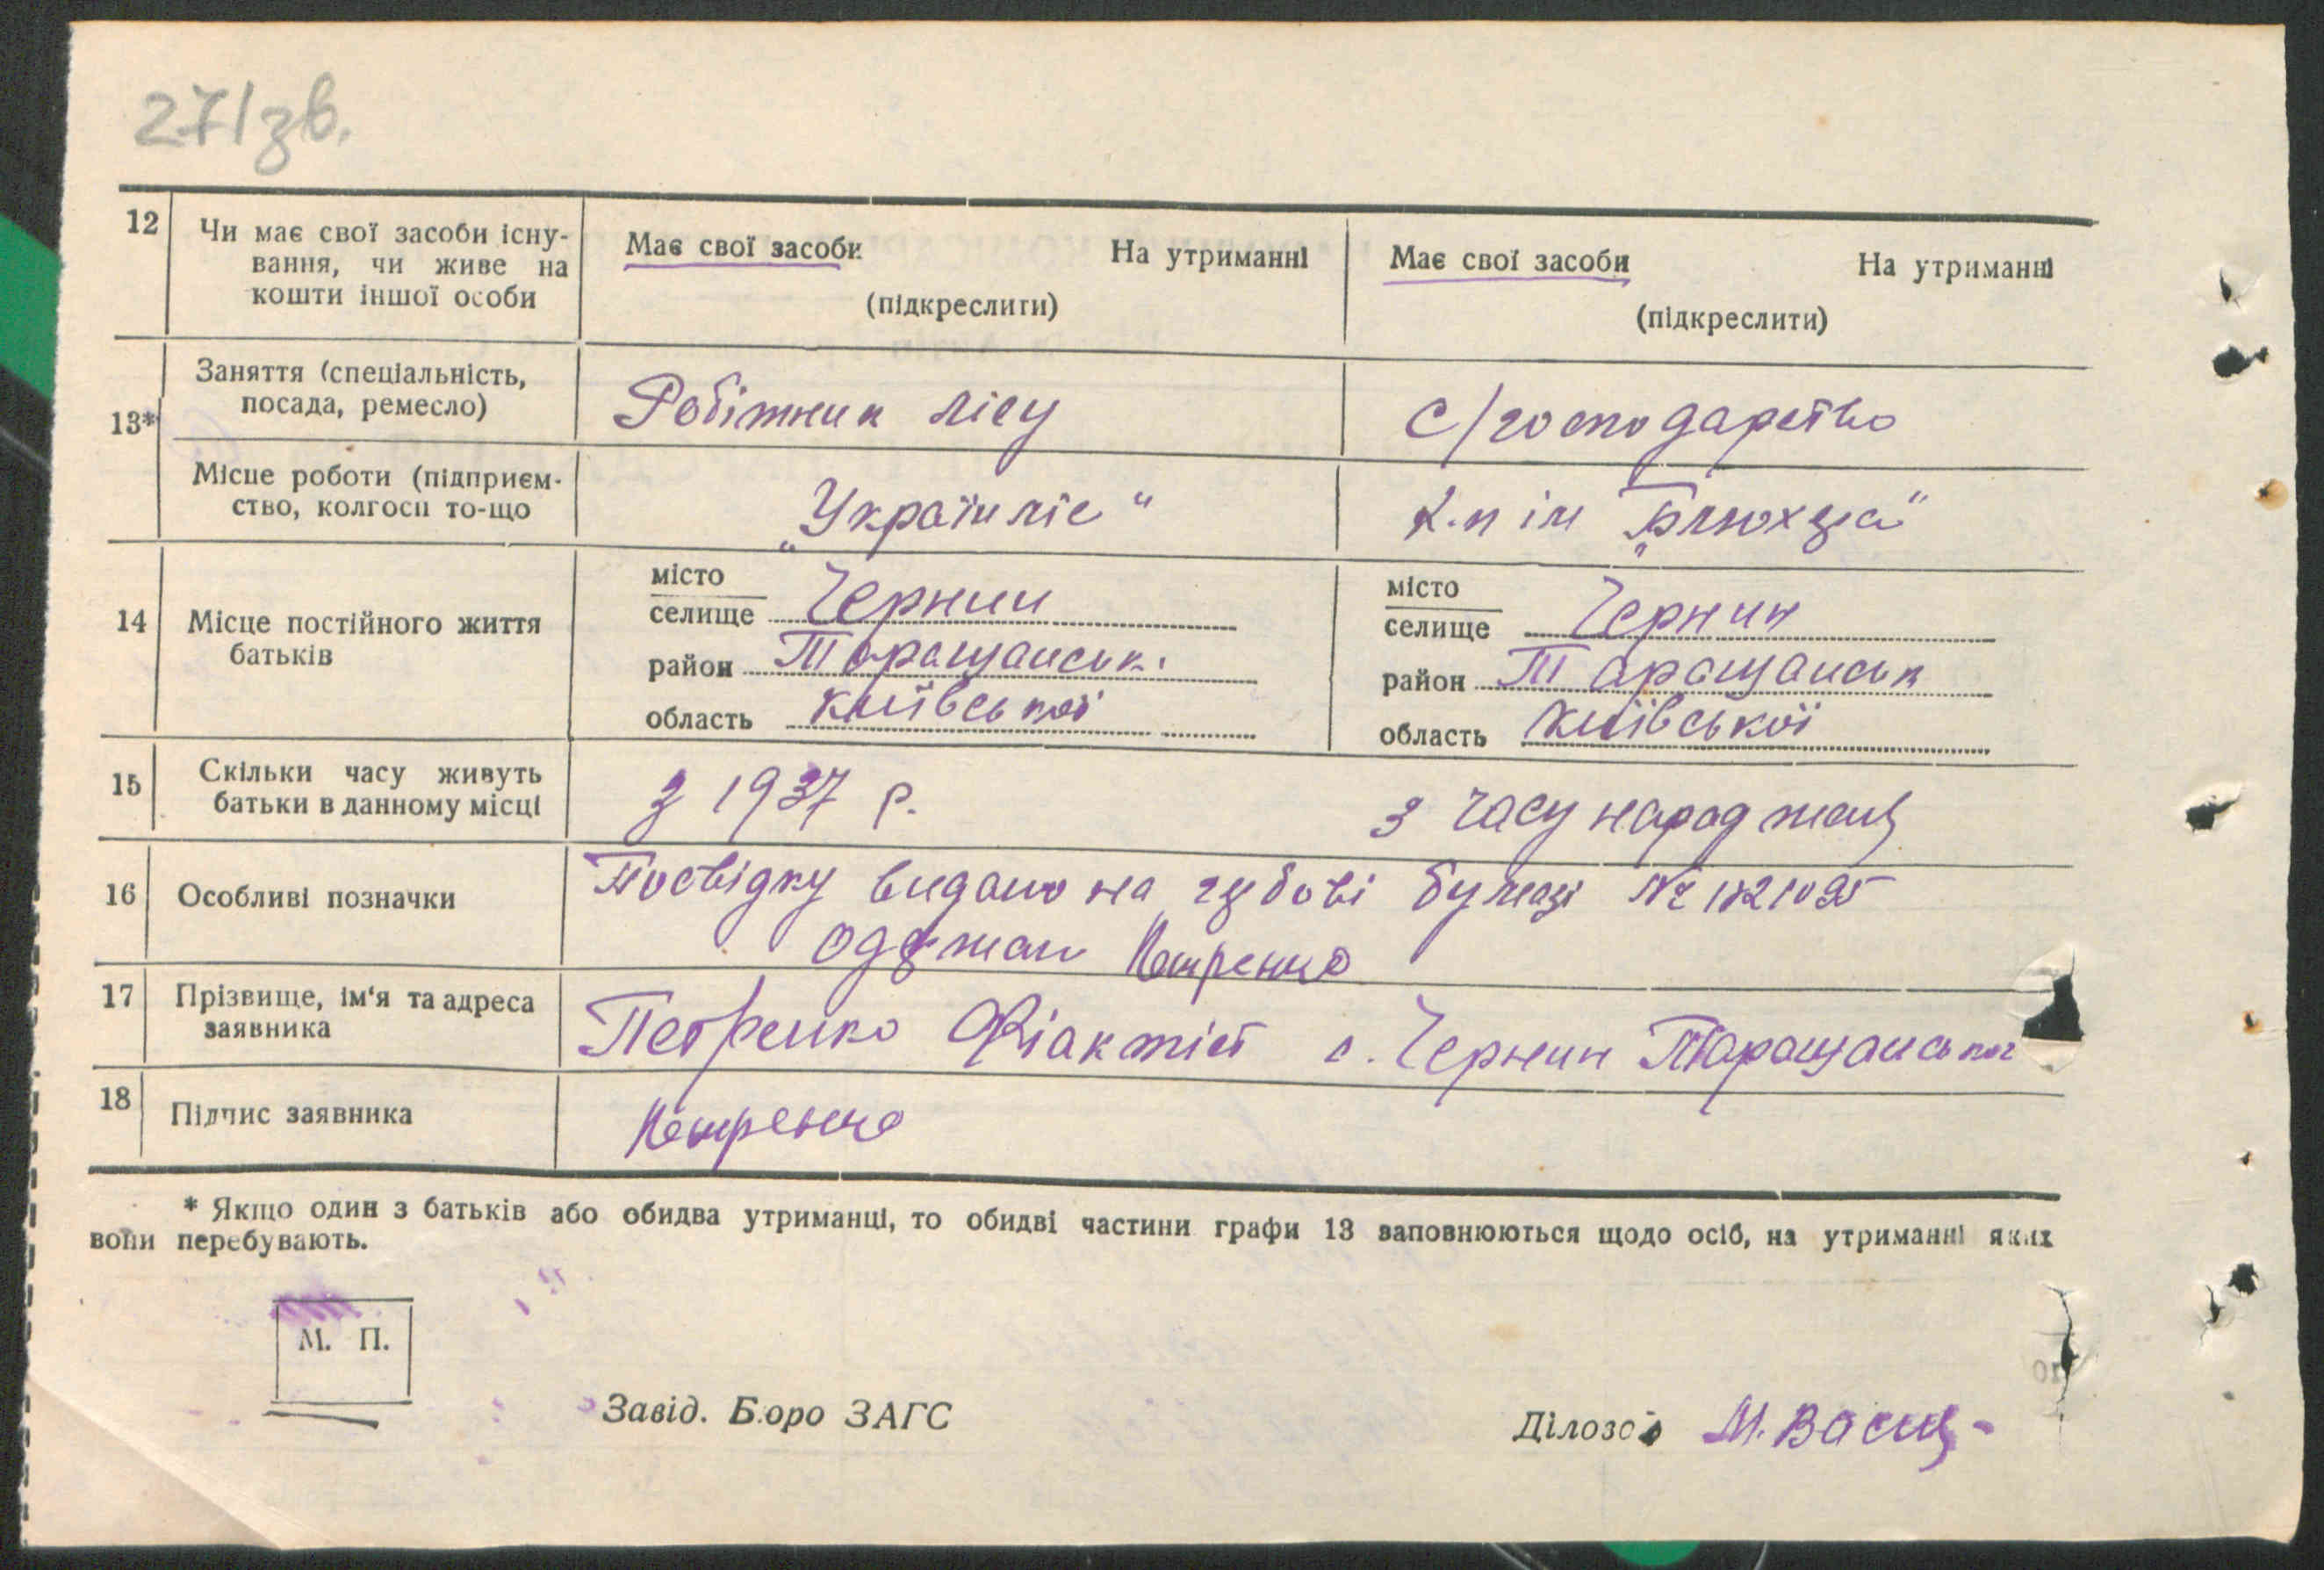 271зв.
12 Чи має свої засоби існу-
вання, чи живе на
кошти іншої особи
Має свої засоби На утриманні
(підкреслити)
Має свої засоби На утриманні
(підкреслити)
13*
Заняття (спеціальність,
посада, ремесло)
Робітник лісу
с/господарство
Місце роботи (підприєм-
ство, колгосп то-що
„Україн ліс“
к.п ім „Блюхера“
14 Місце постійного життя
батьків
місто
селище Чернин
район Таращанськ.
область Київської
місто
селище Чернин
район Таращанськ
область Київської
15 Скільки часу живуть
батьки в данному місці
з 1937 р.
з часу народжен
16 Особливі позначки
Посвідку видано на гербові бумазі №
одержан Петренко
17 Прізвище, ім‘я та адреса
заявника
Петренко Фіактіст с. Чернин Таращанськог
18 Підпис заявника
Петренко
* Якщо один з батьків або обидва утриманці, то обидві частини графи 13 заповнюються щодо осіб, на утриманні яких
вони перебувають.
М. П.
Завід. Бюро ЗАГС
Діловод М.